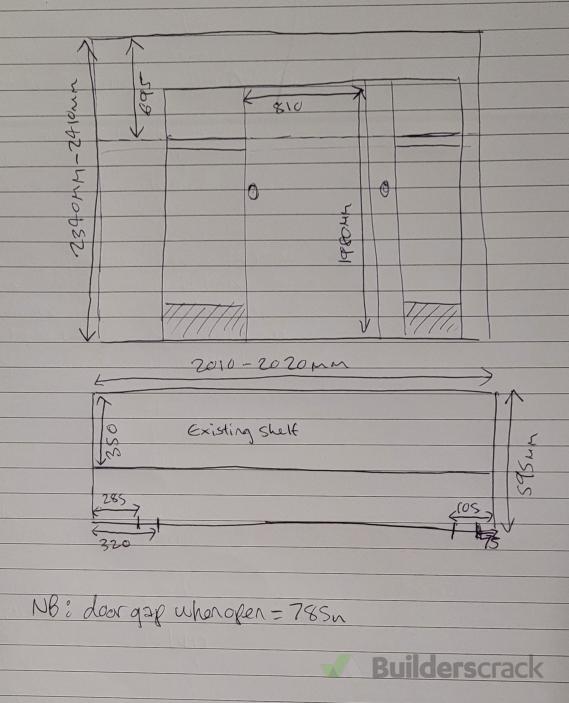 695
810
2340mm-2410mm
1980mm
2010-2020mm
350
Existing shelf
595mm
285
105
320
75
NB: door gap when open = 785m
Builderscrack